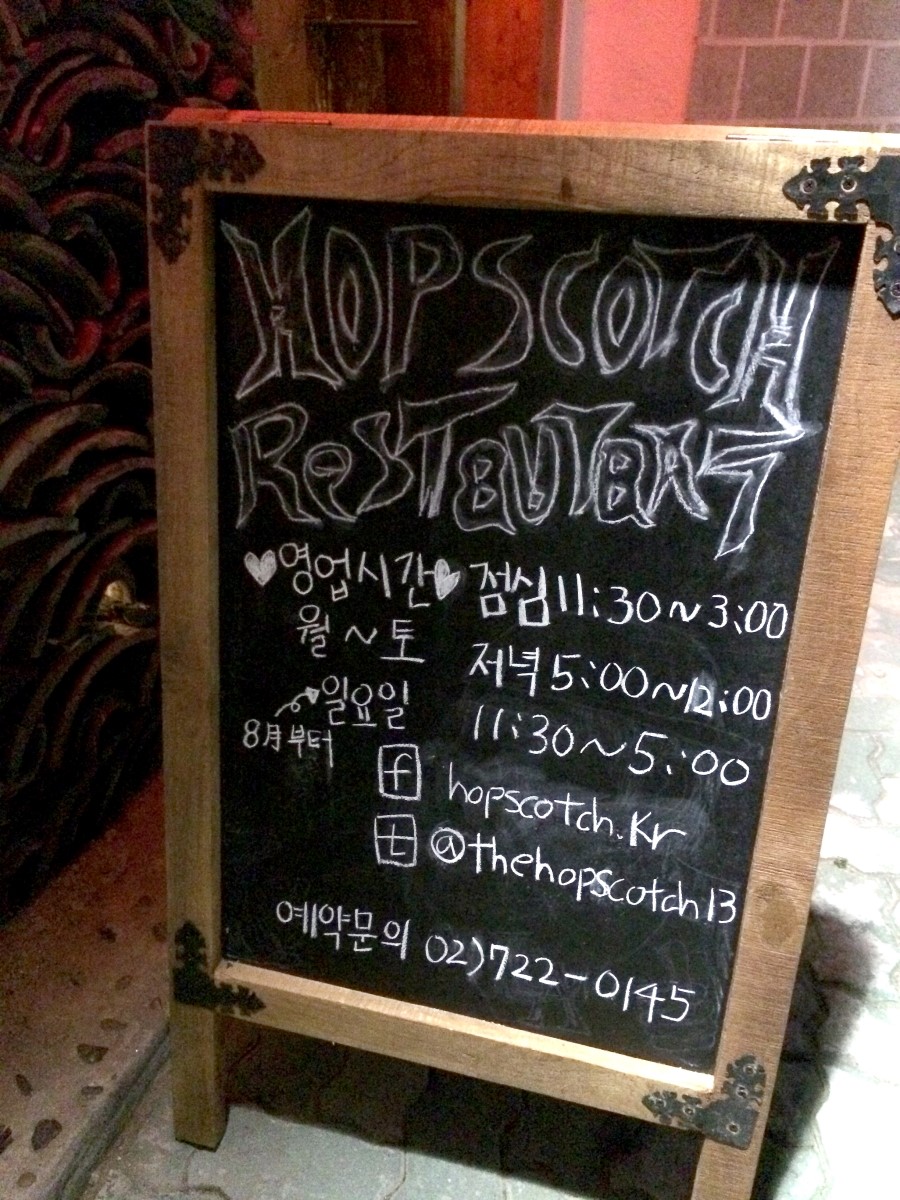 HOPSCOTCH
ReSTAUTANT
♥영업시간♥ 점심 11:30~3:00
월~토 저녁 5:00~12:00
일요일 11:30~5:00
8月부터
f hopscotch.kr
t @thehopscotch13
예약문의 02)722-0145